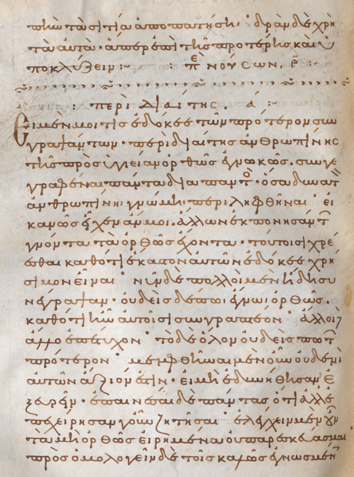 πλῆται σιτία ἀποπατήση· δρᾶν δὲ χρὴ
ταυτὰ· ἅπερ ἐπὶ τῆς προτέρης καὶ ὑ
ποκλύζειν:
περὶ διαίτης α:
Εἰ μέν μοι τις ἐδόκεε τῶν πρότερον συγ
γραψάντων· περὶ διαίτης ἀνθρωπίνης
τῆς πρὸς ὑγιείαν ὀρθῶς ἐγνωκὼς. συγγε
γραφέναι πάντα διὰ παντὸς· ὅσα δυνατὸν
ἀνθρωπίνη γνώμη περιληφθῆναι· εἶ
χεν ἄν μοι. ἄλλων ἐκπονησάντων
γνόντα τὰ ὀρθῶς ἔχοντα· τουτοισι χρέ
εσθαι καθότι ἕκαστον αὐτῶν ἐδόκεε χρή
σιμον εἶναι· νῦν δὲ πολλοὶ μὲν ἤδη συ
νέγραψαν· οὐδεὶς δέ πω ἔγνω ὀρθῶς.
καθότι ἦν αὐτοῖσι συγγραπτέον· ἄλλοι
ἄλλο ἐπέτυχον· τὸ δὲ ὅλον οὐδείς πω τῶν
πρότερον· μεμφθῆναι μὲν οὖν οὐδενὶ
αὐτῶν ἄξιόν ἐστιν· εἰ μὴ ἐδυνήθησαν ἐ
ξευρεῖν· ἐπαινέσαι δὲ πάντας ὅτι ἀλλ᾽ ἐ
πεχείρησαν γοῦν ζητῆσαι· ἐλέγχειν μὲν οὖν
τὰ μὴ ὀρθῶς εἰρημένα οὐ παρεσκεύασμαι
προσομολογεῖν δὲ τοῖς καλῶς ἐγνωσμένοις